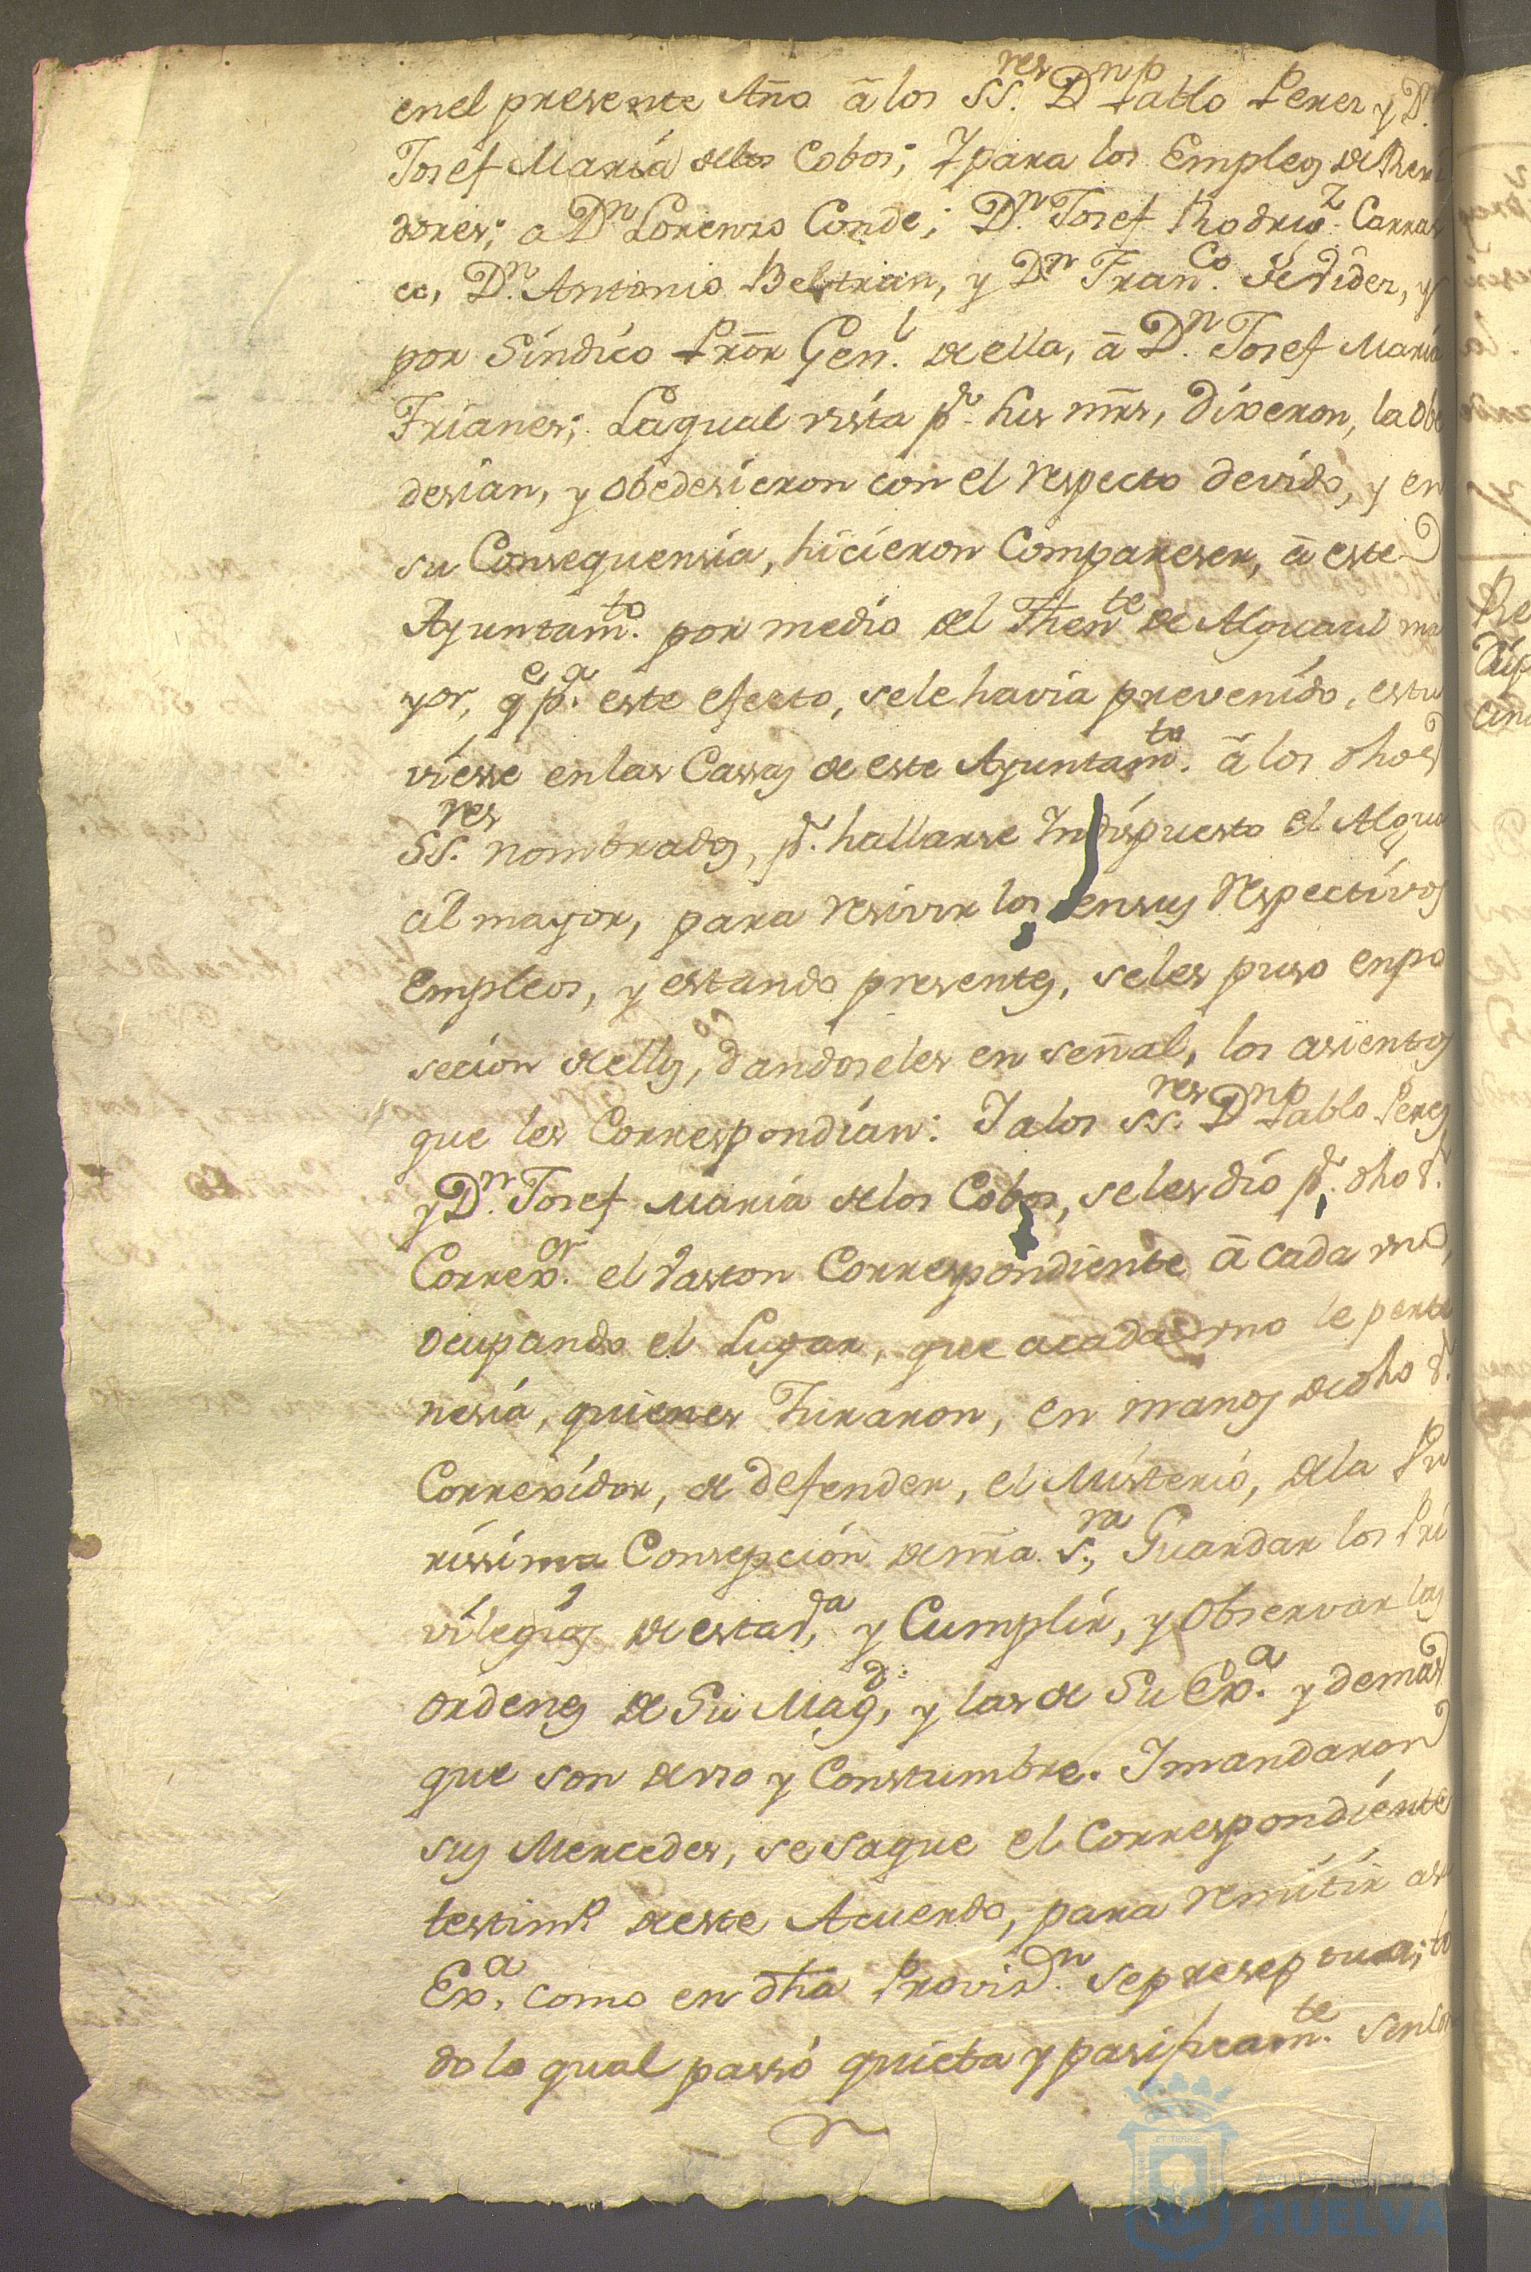 enel presente Año â los SS.res Dn Pablo Perez y Dn.
Josef Maria delos Cobos; Y para los Empleos de Rexi
dores; a Dn. Lorenzo Conde; Dn. Josef Rodrigz. Carras
co, Dn. Antonio Beltran, y Dn Franco. y
por Sindico Prõr Genl. de ella, â Dn. Josef Maria
Trianes; La qual vista pr. sus mrs, dixeron, la obe
desian, y obedesieron con el respecto devido, y en
su Consequensia, hicieron Compareser, â este
Ayuntamto. por medio del Thente de Alguasil ma
yor, qe pa. este efecto, sele havia prevenido, estu
viesse enlas Cassas de este Ayuntamto. â los dhos
SS.res nombrados, pr. hallarse Indispuesto el Algua
cil mayor, para resivirlos ensus respectivos
Empleos, y estando presentes, seles puso enpo
secion dellos, dandoseles en señal, los asientos
que les Correspondian: Y alos SS.res Dn Pablo Perez
y Dn. Josef Maria delos Cobos, seles dio pr. dho Sr.
Correxor. el baston Correspondiente â cada uno,
ocupando el Lugar, que acada uno le perte
nesia, quienes Juraron, en manos de dho Sr.
Correxidor, de defender, el Misterio, dela Pu
rissima Consepción de nrã. S.ra, Guardar los Pri
vilegios de esta Va, y Cumplir, y Observar las
ordenes de Su Magd., y las de Su Exa. y demas
que son de uso y Constumbre. Y mandaron
sus Mercedes, se saque el Correspondiente
testimo. de este Acuerdo, para remitir a S
Exa. como en dha Provisn. se preseptua; to
do lo qual passó quieta y pasificamte. sin con
AYUNTAMIENTO DE
HUELVA